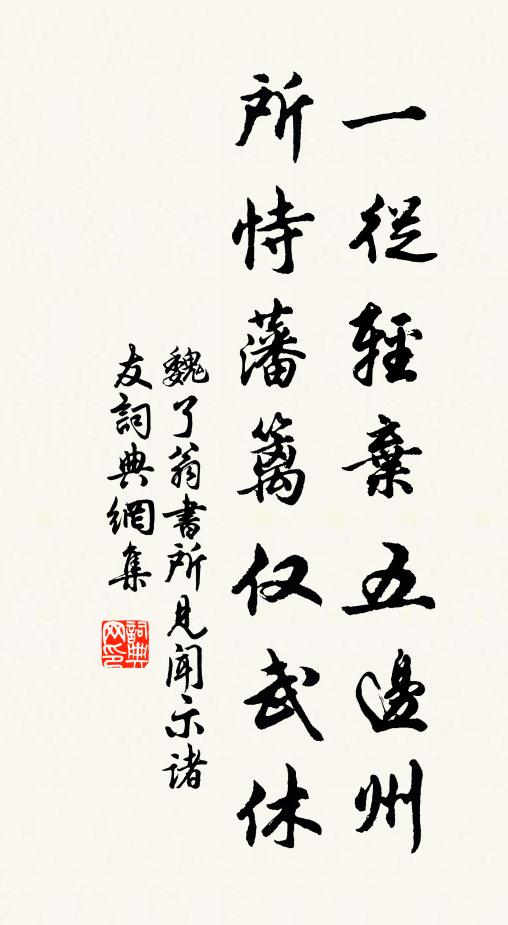 一從輕棄五邊州
所恃藩籬仅武休
魏了翁書所見聞示諸
友詞典網集
詞典网印